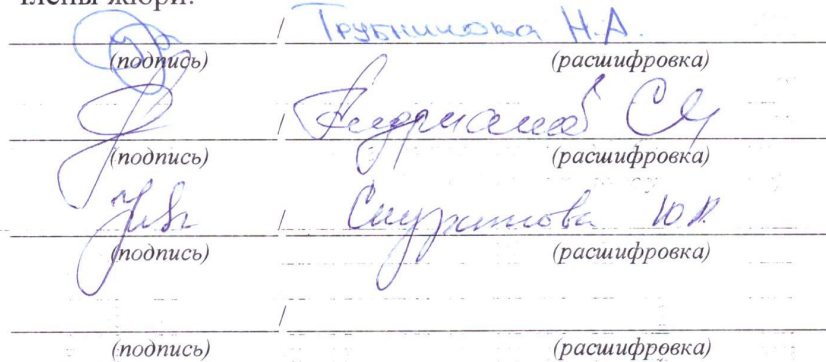 члены жюри:
/ Трубникова Н.А.
(подпись) (расшифровка)
/ Андрианов С
(подпись) (расшифровка)
/ Ю.
(подпись) (расшифровка)
/
(подпись) (расшифровка)